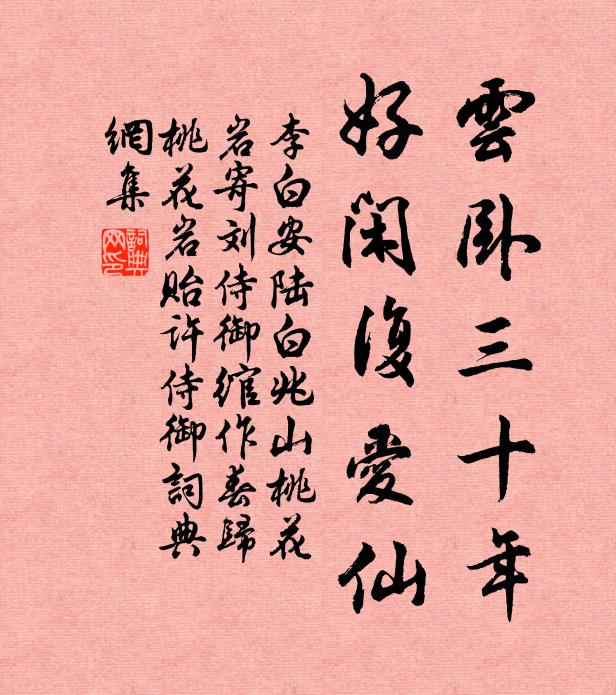 雲臥三十年
好閑復愛仙
李白安陆白兆山桃花
岩寄刘侍御綰作春歸
桃花岩贻许侍御詞典
網集
詞典網印